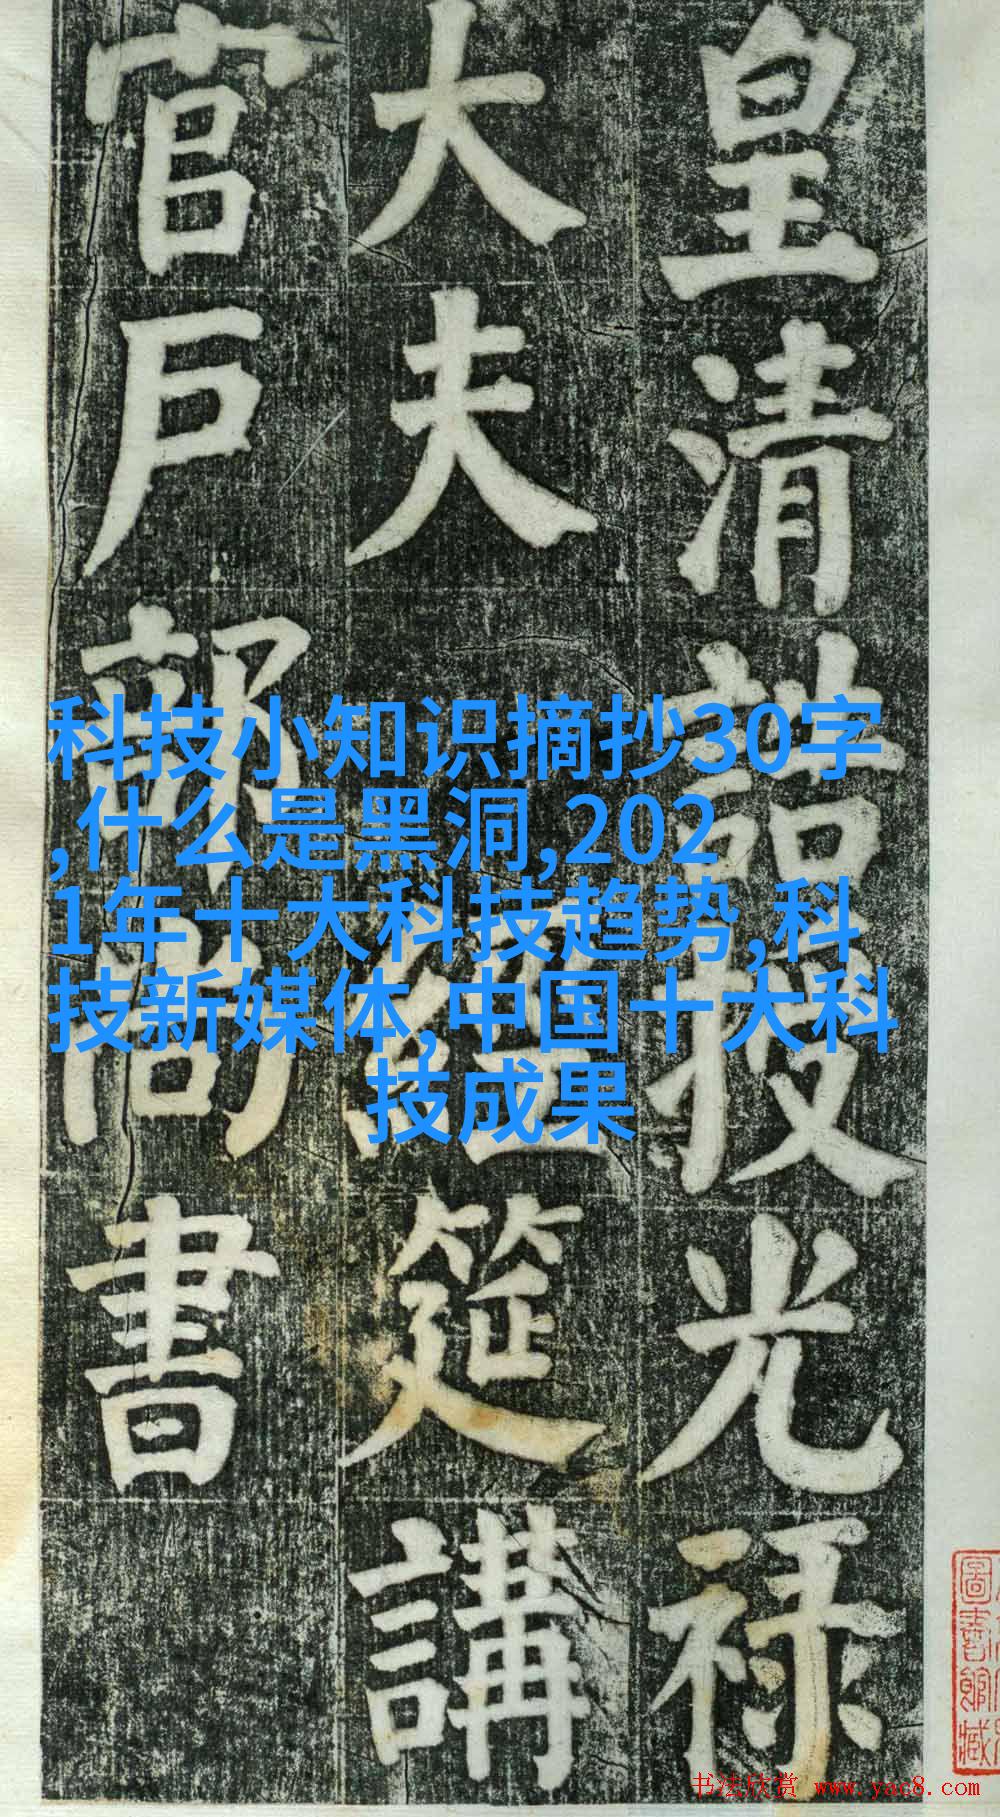 皇清誥授光禄
大夫經筵講
官戶部尚書
科技小知识摘抄30字
,什么是黑洞,202
1年十大科技趋势,科
技新媒体,中国十大科
技成果
圖書館藏
书法欣赏 www.yac8.com